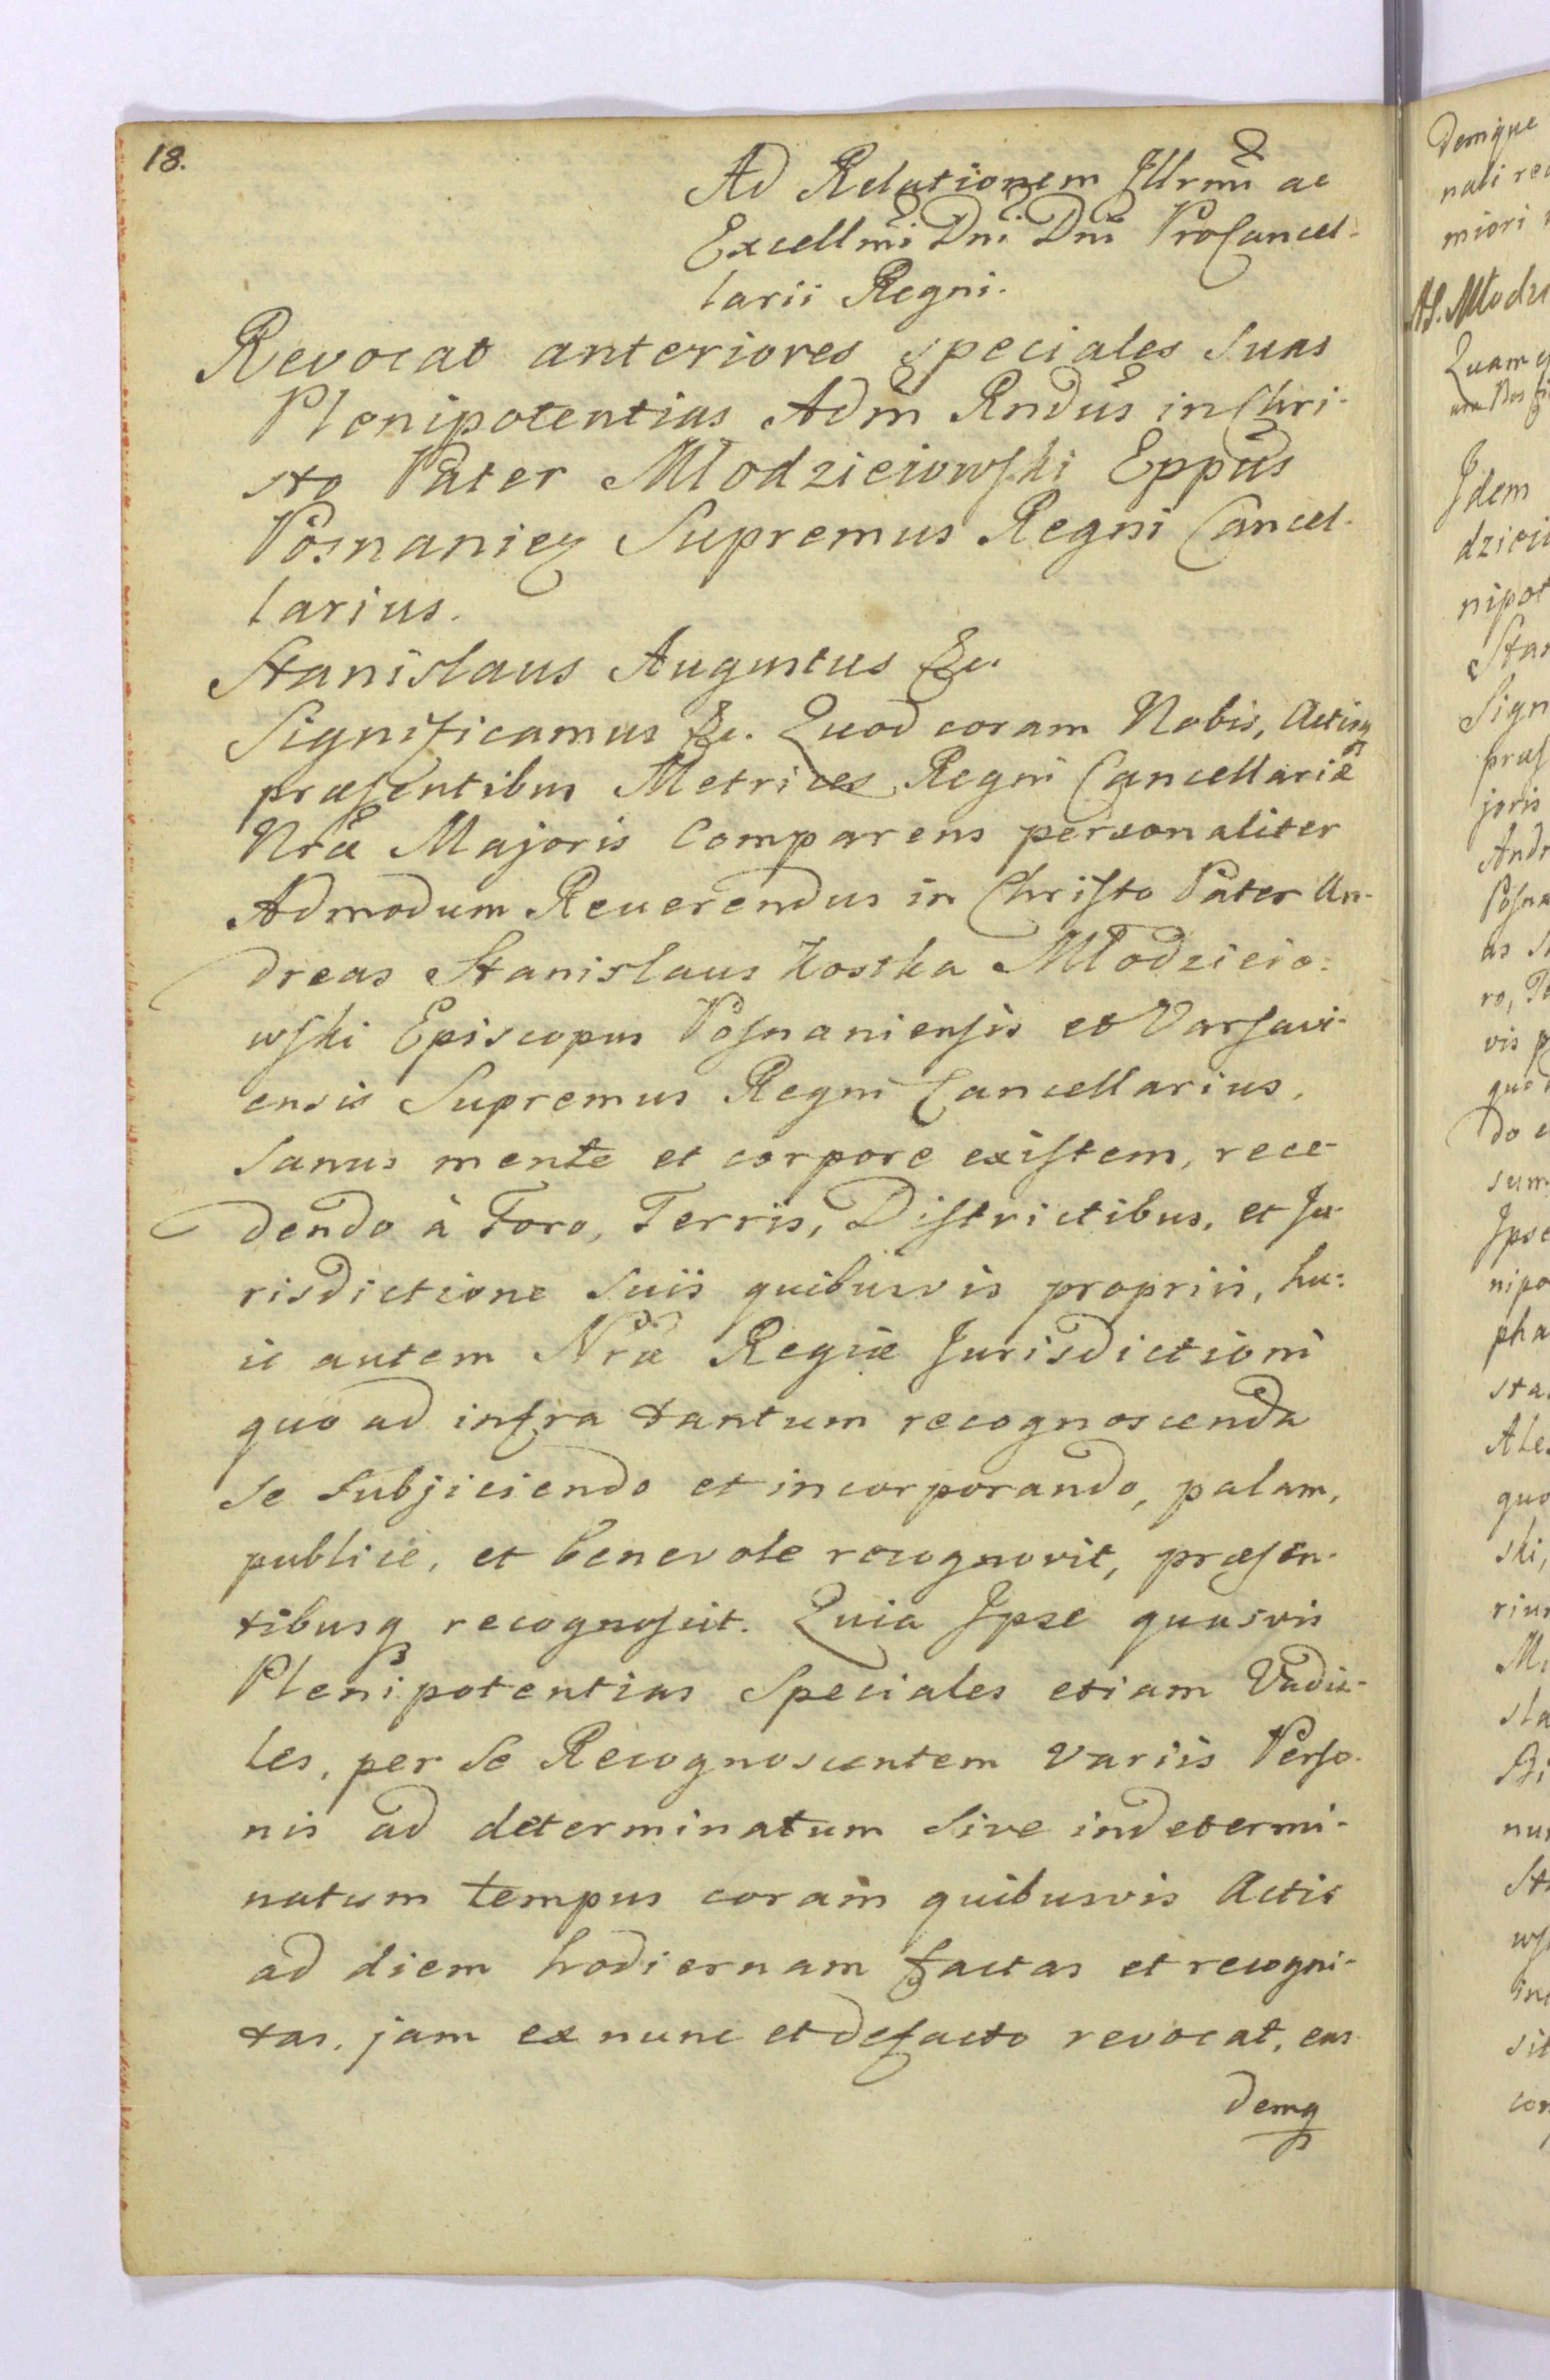 18.
Ad Relationem Jllrmi ac
Excellmi Dni Dni ProCancel-
larii Regni.
Revocat anteriores speciales suas
Plenipotentias Adm Rndus in Chri-
sto Pater Młodzieiowski Eppus
Posnanien Supremus Regni Cancel-
larius.
Stanislaus Augustus &c.
Significamus &c. Quod coram Nobis, Actisq
præsentibus Metrices Regni Cancellariæ
Nræ Majoris Comparens personaliter
Admodum Reuerendus in Christo Pater An-
dreas Stanislaus Kostka Młodzieio-
wski Episcopus Posnaniensis et Varsavi-
ensis Supremus Regni Cancellarius,
sanus mente et corpore existem, rece-
dendo à Foro, Terris, Districtibus, et Ju-
risdictione suis quibusvis propriis, hu-
ic autem Nræ Regiæ Jurisdictioni
quo ad infra tantum recognoscenda
se subjiciendo et incorporando, palam,
publice, et benevole recognovit, præsen-
tibusq recognoscit. Quia Jpse quasvis
Plenipotentias Speciales etiam Vadia-
les, per se Recognoscentem variis Perso-
nis ad determinatum sive indetermi-
natum tempus coram quibusvis Actis
ad diem hodiernam factas et recogni-
tas, jam ex nunc et defacto revocat, eas-
demq
Demque
nati
miori
Quam
Jdem
nipot
præs
joris
Andr
as
ro,
vis
do
sum
nipo
pha
quo